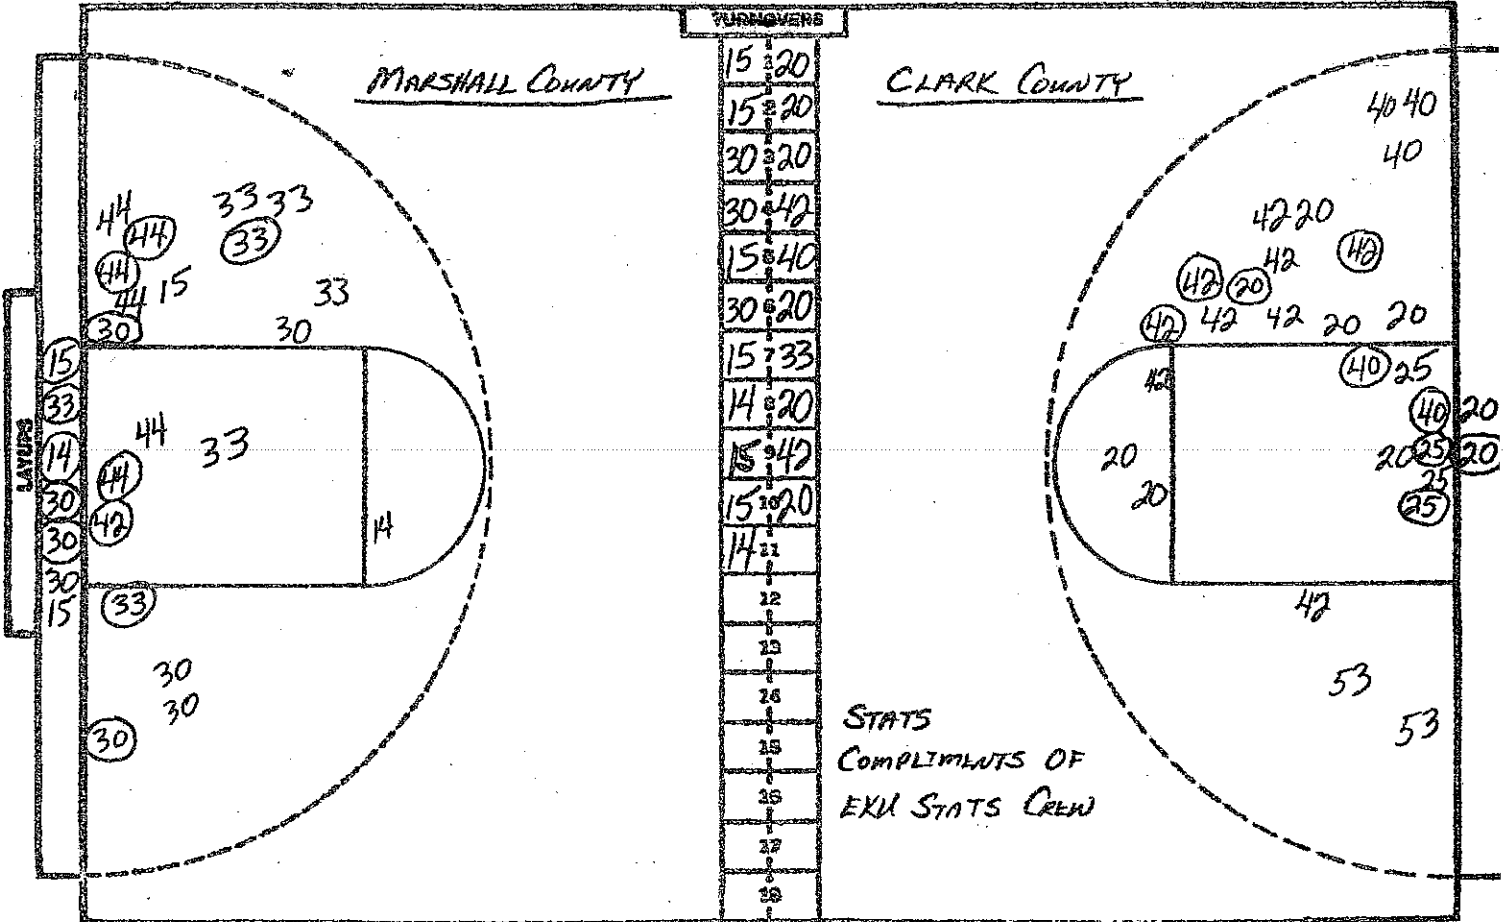 TURNOVERS
MARSHALL COUNTY
CLARK COUNTY
15 1 20
15 2 20
30 3 20
30 4 42
15 5 40
30 6 20
15 7 33
14 8 20
15 9 42
15 10 20
14 11
12
13
14
15
16
17
18
LAYUPS
15
33
14
30
30
30
15
44
33 33
44
33
44
15
44
33
30
30
44
33
44
42
14
33
30
30
30
40 40
40
42 20
42
42
42
20
42
42
42
20
20
40
25
42
40
20
20
20
25
20
25
20
25
42
53
53
STATS
COMPLIMENTS OF
EKU STATS CREW